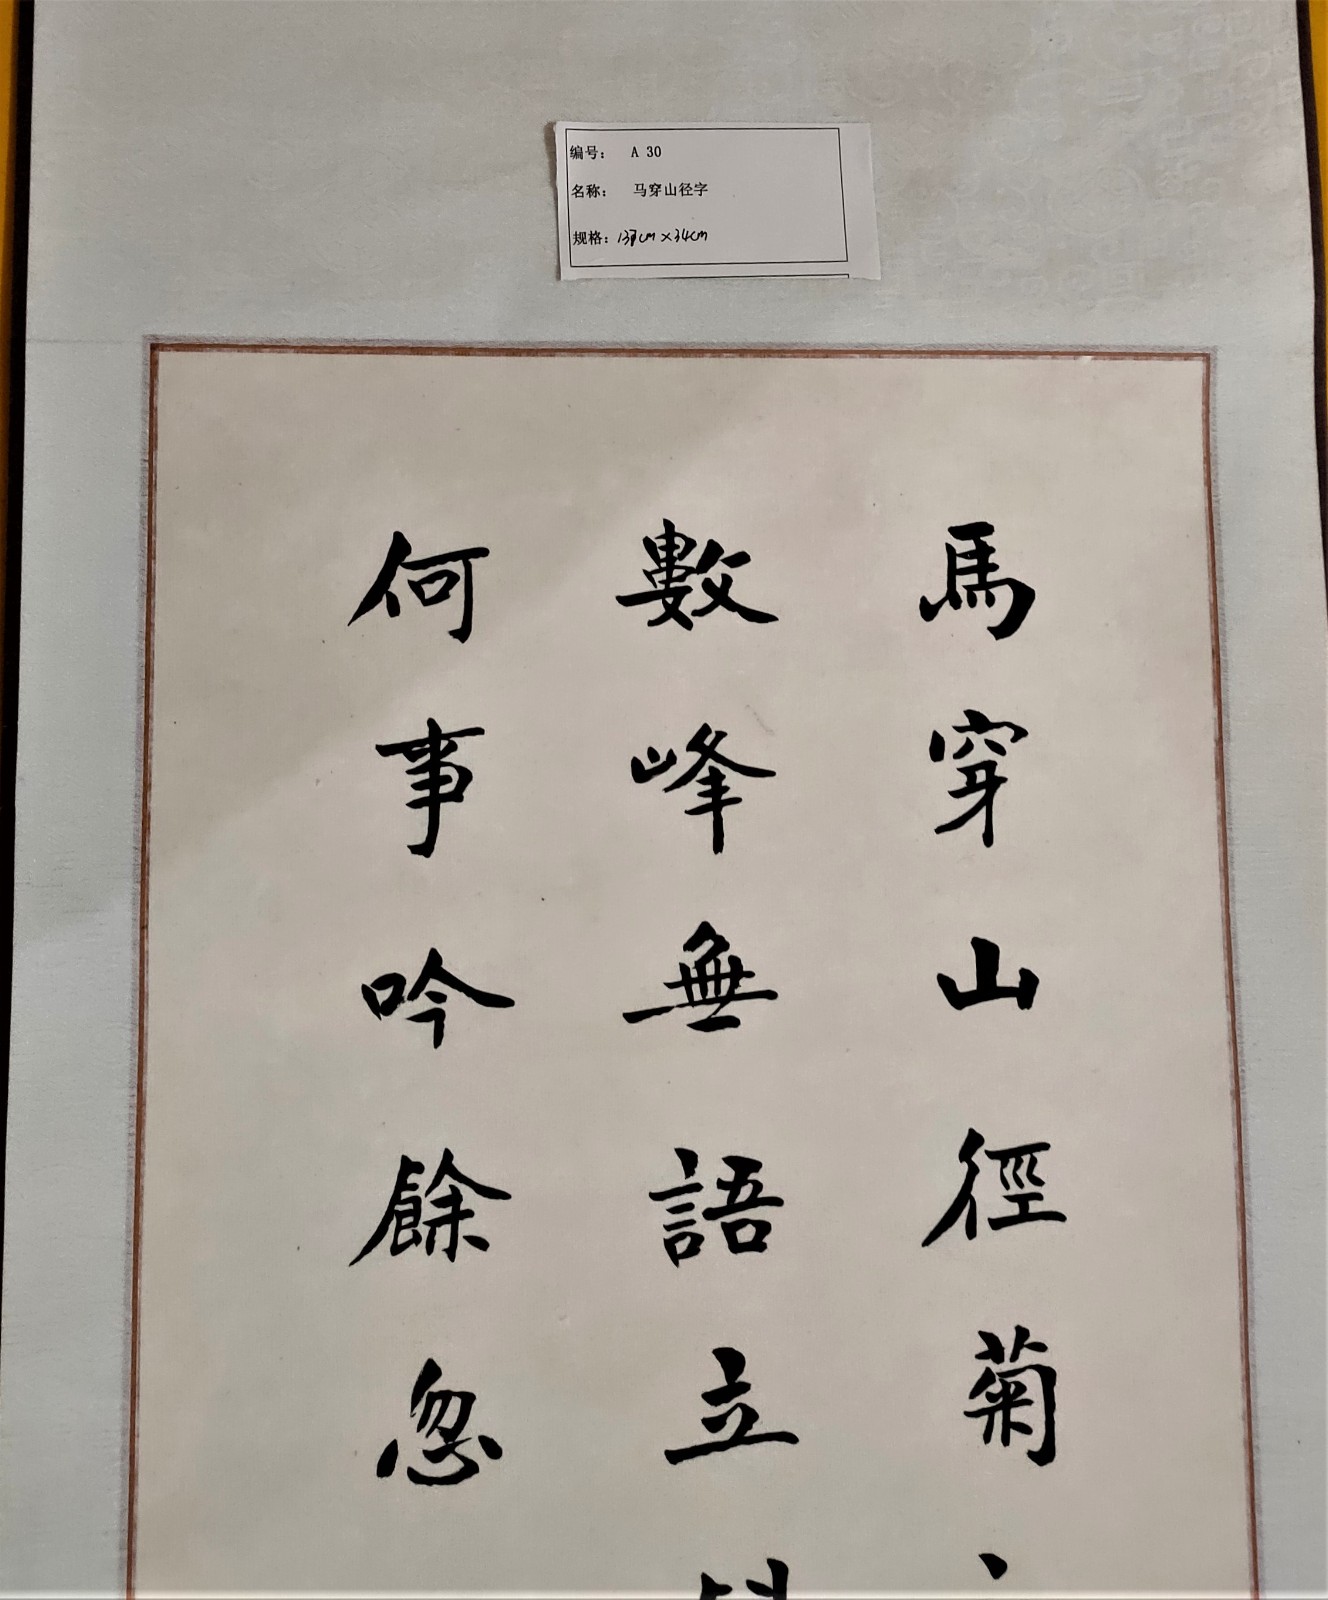 编号： A 30
名称： 马穿山径字
规格：137cm×34cm
馬穿山徑菊
數峰無語立
何事吟餘忽